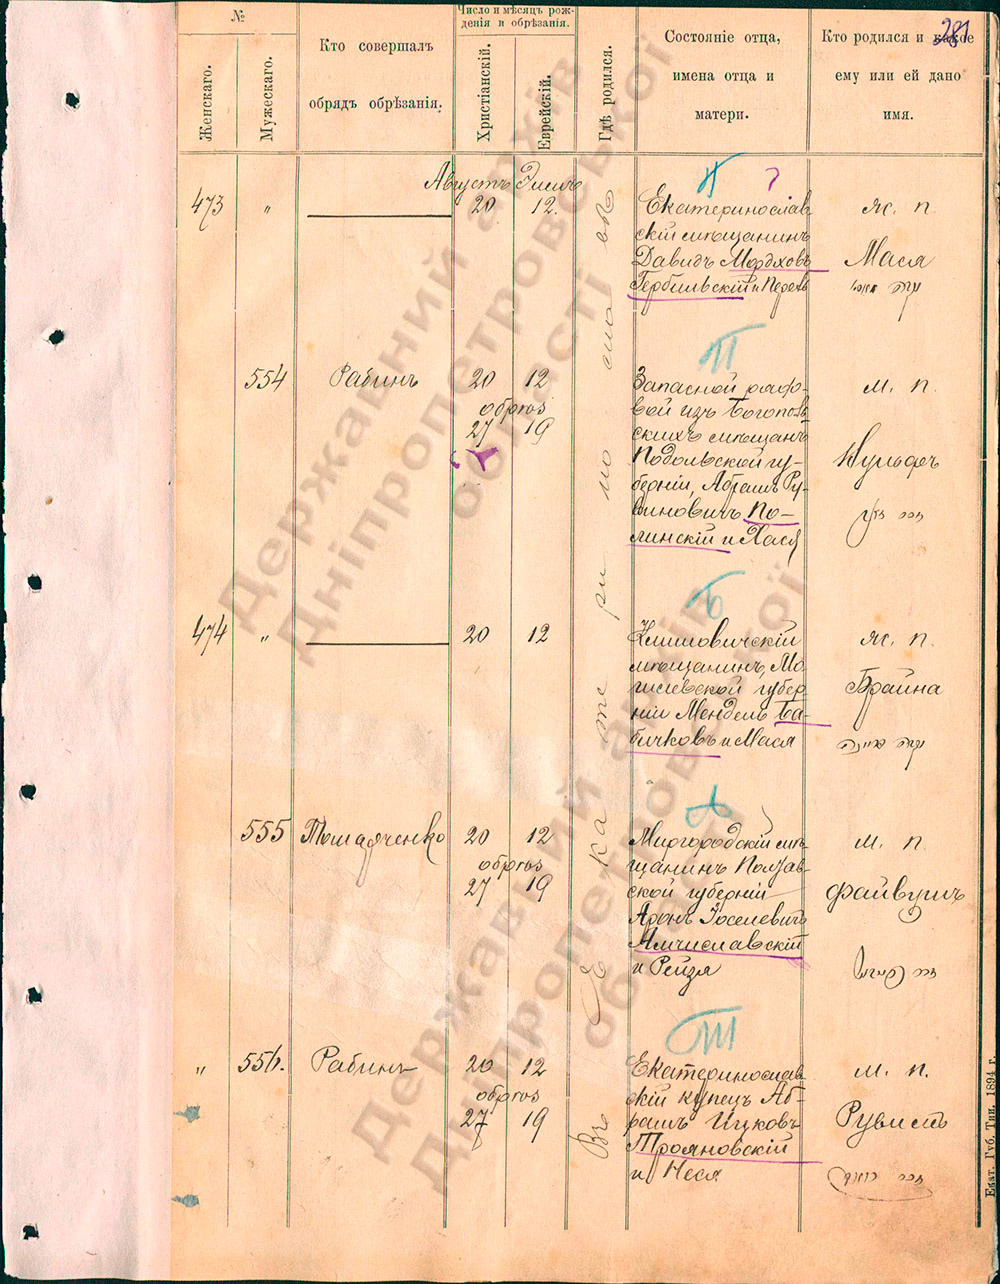 281
№
Женскаго.
Мужескаго.
Кто совершалъ
обрядъ обрѣзанія.
Число и мѣсяцъ рож-
денія и обрѣзанія.
Христіанскій.
Еврейскій.
Гдѣ родился.
Состояніе отца,
имена отца и
матери.
Кто родился и какое
ему или ей дано
имя.
Въ Екатеринославѣ
Августъ Элилъ
473 " 20 12.
Екатеринослав
скій мѣщанинъ
Давидъ Мордховъ
Гербильскій и
ж. п.
Мася
554 Рабинъ 20 12
обрѣз
27 19
П
Запасной рядо-
вой изъ Богополь
скихъ мѣщанъ
Подольской гу-
берніи, Абрамъ Ру-
виновичъ По-
линскій и Хася
м. п.
474 " 20 12
Б
Климовичскій
мѣщанинъ, Мо-
гилевской губер
ніи Мендель Ба-
бичковъ и Мася
ж. п.
Брайна
555 20 12
обрѣз
27 19
Миргородскій мѣ
щанинъ Полтав-
ской губерніи
Аронъ Іоселевичъ
Мчиславскій
и Рейзя
м. п.
Файвушъ
" 556. Рабинъ 20 12
обрѣз
27 19
Т
Екатеринослав
скій купецъ Аб-
рамъ Ицковъ
Трояновскій
и Неся
м. п.
Рувимъ
Екат. Губ. Тип. 1894 г.
Державний архів
Дніпропетровської
області
Державний архів
Дніпропетровської
області